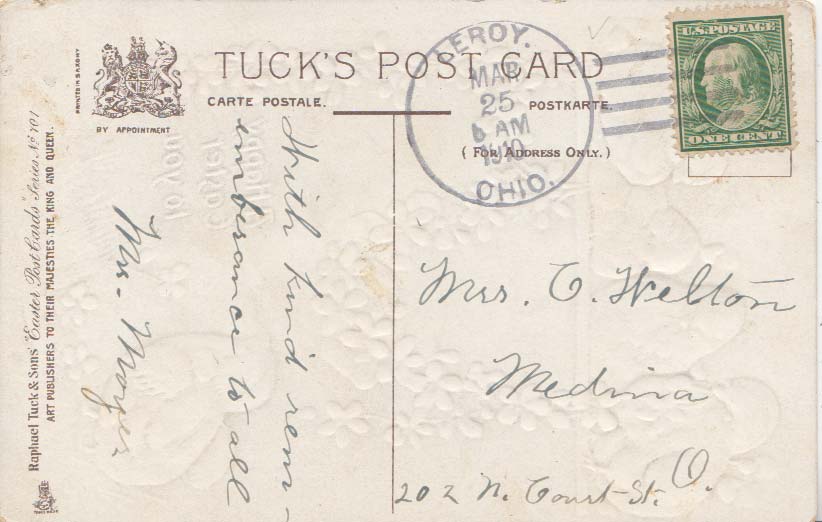 TUCK'S POST CARD
CARTE POSTALE.
POSTKARTE.
( FOR ADDRESS ONLY. )
BY APPOINTMENT
PRINTED IN SAXONY
Raphael Tuck & Sons' "Easter Post Cards" Series No 701
ART PUBLISHERS TO THEIR MAJESTIES THE KING AND QUEEN.
LEROY.
MAR
25
6 AM
1910
OHIO.
U.S. POSTAGE
ONE CENT
With kind rem-
emberance to all
Mrs. Moyer
Mrs. C. Welton
Medina
O.
202 N. Court St.
A Happy
Easter
to you